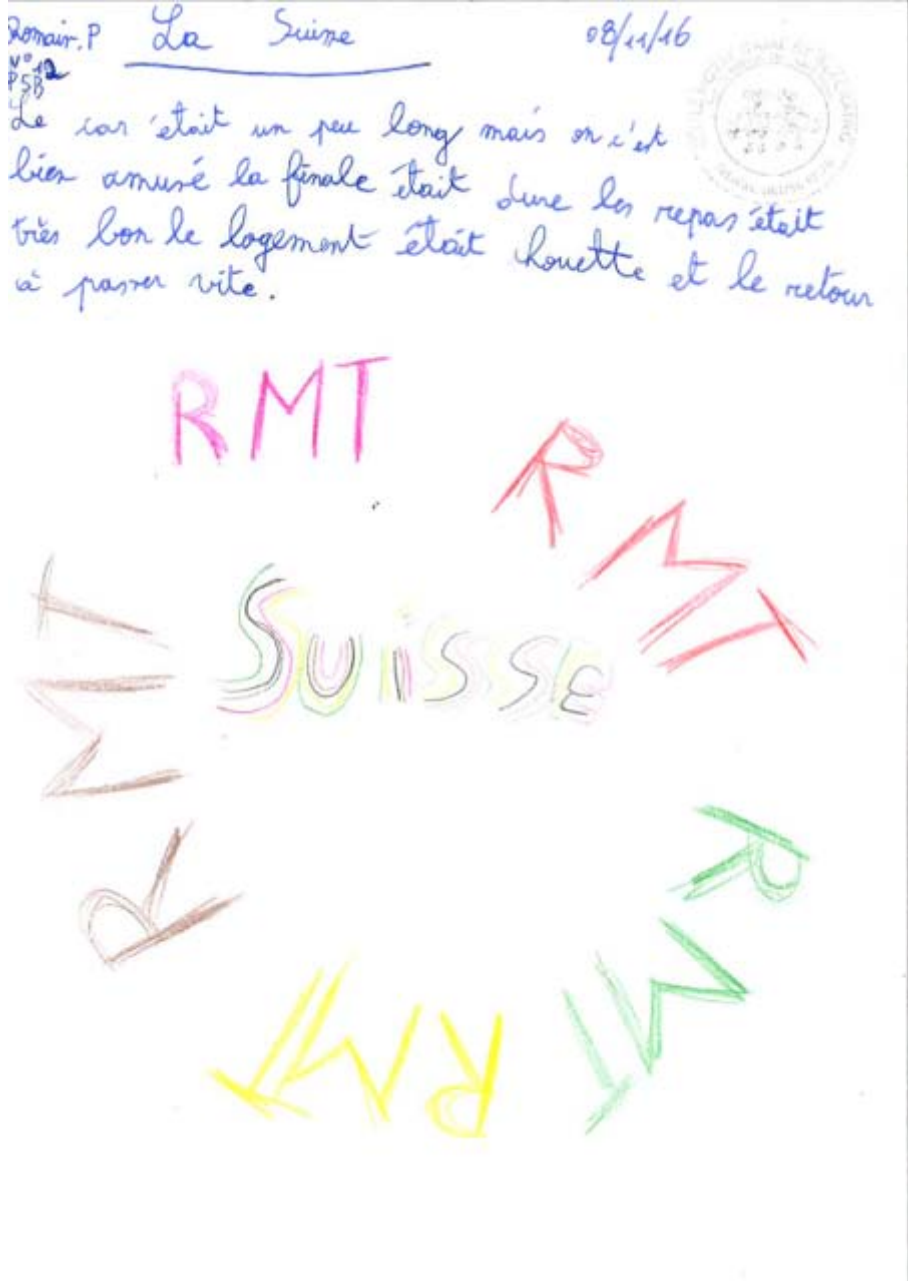 Romain.P La Suisse 08/11/16
N° 12
P5B
Le car était un peu long mais on c'est
bien amusé la finale était dure les repas était
très bon le logement était chouette et le retour
à passer vite.
RMT
RMT
RMT
Suisse
RMT
RMT